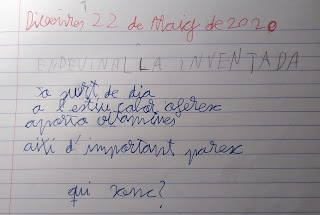 Divenres 22 de Maig de 2020
ENDEVINALLA INVENTADA
surt de dia
a l'estiu calor oferex
aporta vitamines
aixi d'important parex
qui sonc?